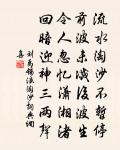 流水淘沙不暫停
前波未滅後波生
令人忽憶瀟湘渚
回唱迎神三兩聲
劉禹錫浪淘沙詞